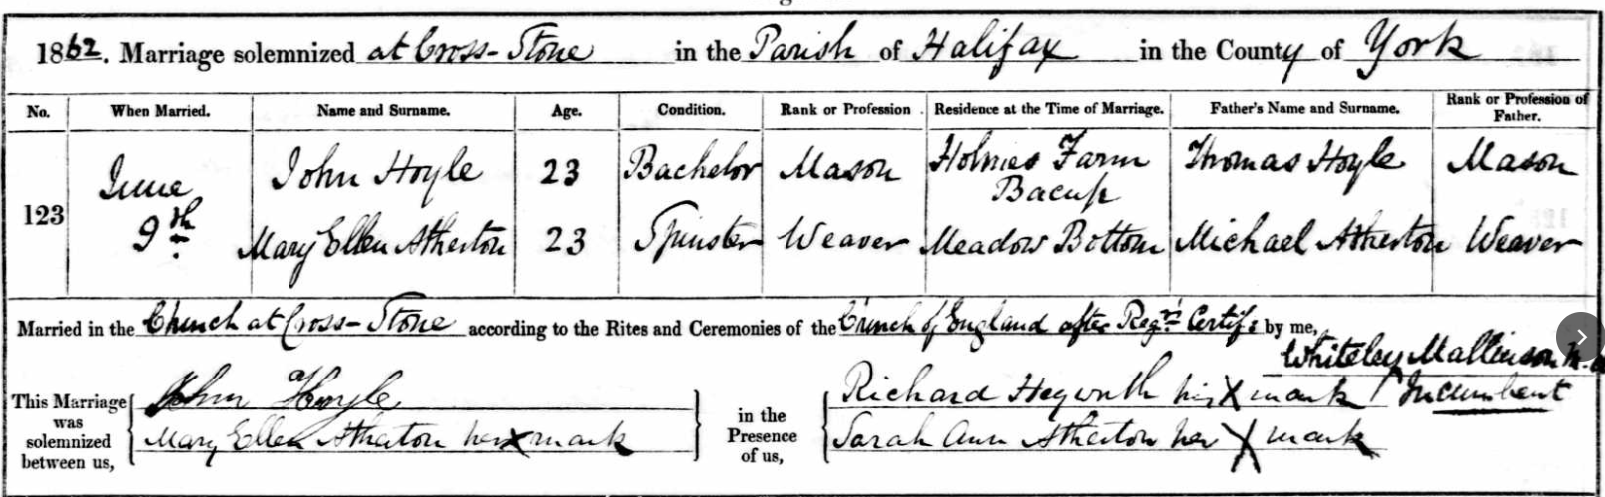 1862. Marriage solemnized at Cross-Stone in the Parish of Halifax in the County of York
No. When Married. Name and Surname. Age. Condition. Rank or Profession Residence at the Time of Marriage. Father's Name and Surname. Rank or Profession of Father.
123 June 9th John Hoyle 23 Bachelor Mason Holmes Farm Bacup Thomas Hoyle Mason
Mary Ellen Atherton 23 Spinster Weaver Meadow Bottom Michael Atherton Weaver
Married in the Church at Cross-Stone according to the Rites and Ceremonies of the Church of England after Regrs Certife by me,
Whiteley Mallinson M.A
Incumbent
This Marriage was solemnized between us,
John Hoyle
Mary Ellen Atherton her X mark
in the Presence of us,
Richard Heyworth his X mark
Sarah Ann Atherton her X mark